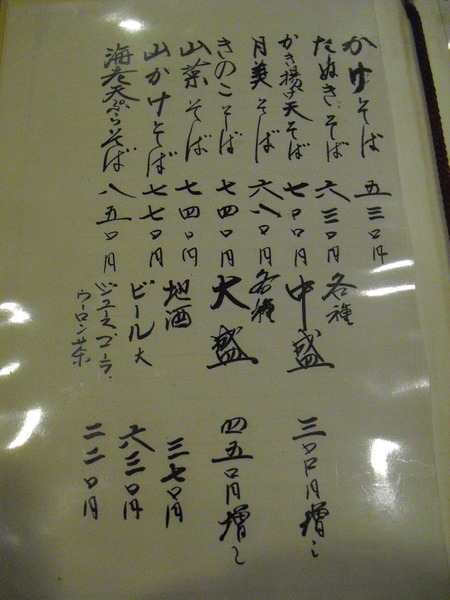 かけそば 五三〇円
たぬきそば 六三〇円
かき揚げ天そば 七〇〇円
月美そば 六八〇円
きのこそば 七四〇円
山菜そば 七四〇円
山かけそば 七七〇円
海老天ぷらそば 八五〇円
各種
中盛 三〇〇円増し
各種
大盛 四五〇円増し
地酒 三七〇円
ビール大 六三〇円
ジュースコーラ
ウーロン茶 二二〇円